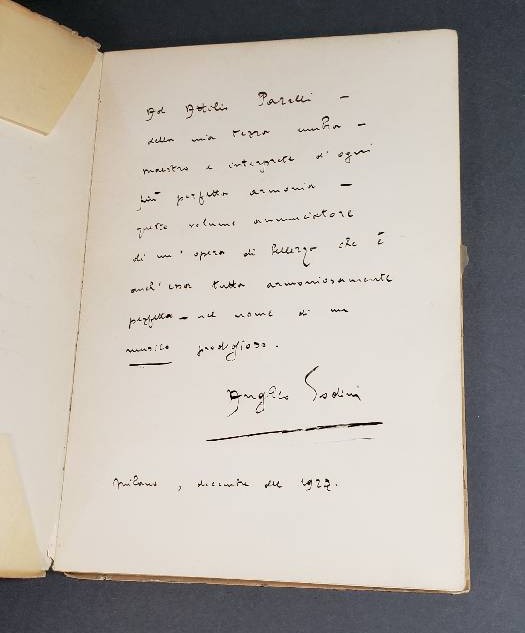 Ad Attilio Parelli —
della mia terra umbra —
maestro e interprete d'ogni
più perfetta armonia —
questo volume annunciatore
di un' opera di bellezza che è
anch'essa tutta armoniosamente
perfetta — nel nome di un
musico prodigioso.
Angelo Sodini
Milano, dicembre del 1927.